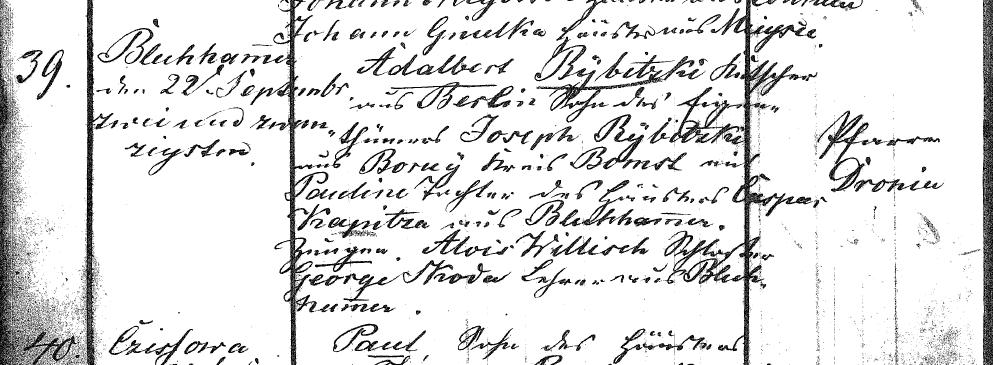 Johann Gmelka Häusler aus Miegsce.
39.
Blechhammer
den 22t. Septembr.
zwei und zwan-
zigsten.
Adalbert Rybitzki Kutscher
aus Berlin Sohn des Eigen-
thümers Joseph Rybitzki
aus Boruy Kreis Bomst mit
Pauline Tochter des Häuslers Caspar
Kapitza aus Blechhamer.
Zeugen. Alois Willisch Schlosser
George Skoda Lehrer aus Blech-
hamer.
Pfarrer
Dronia
40.
Czissowa
Paul, Sohn des Häuslers